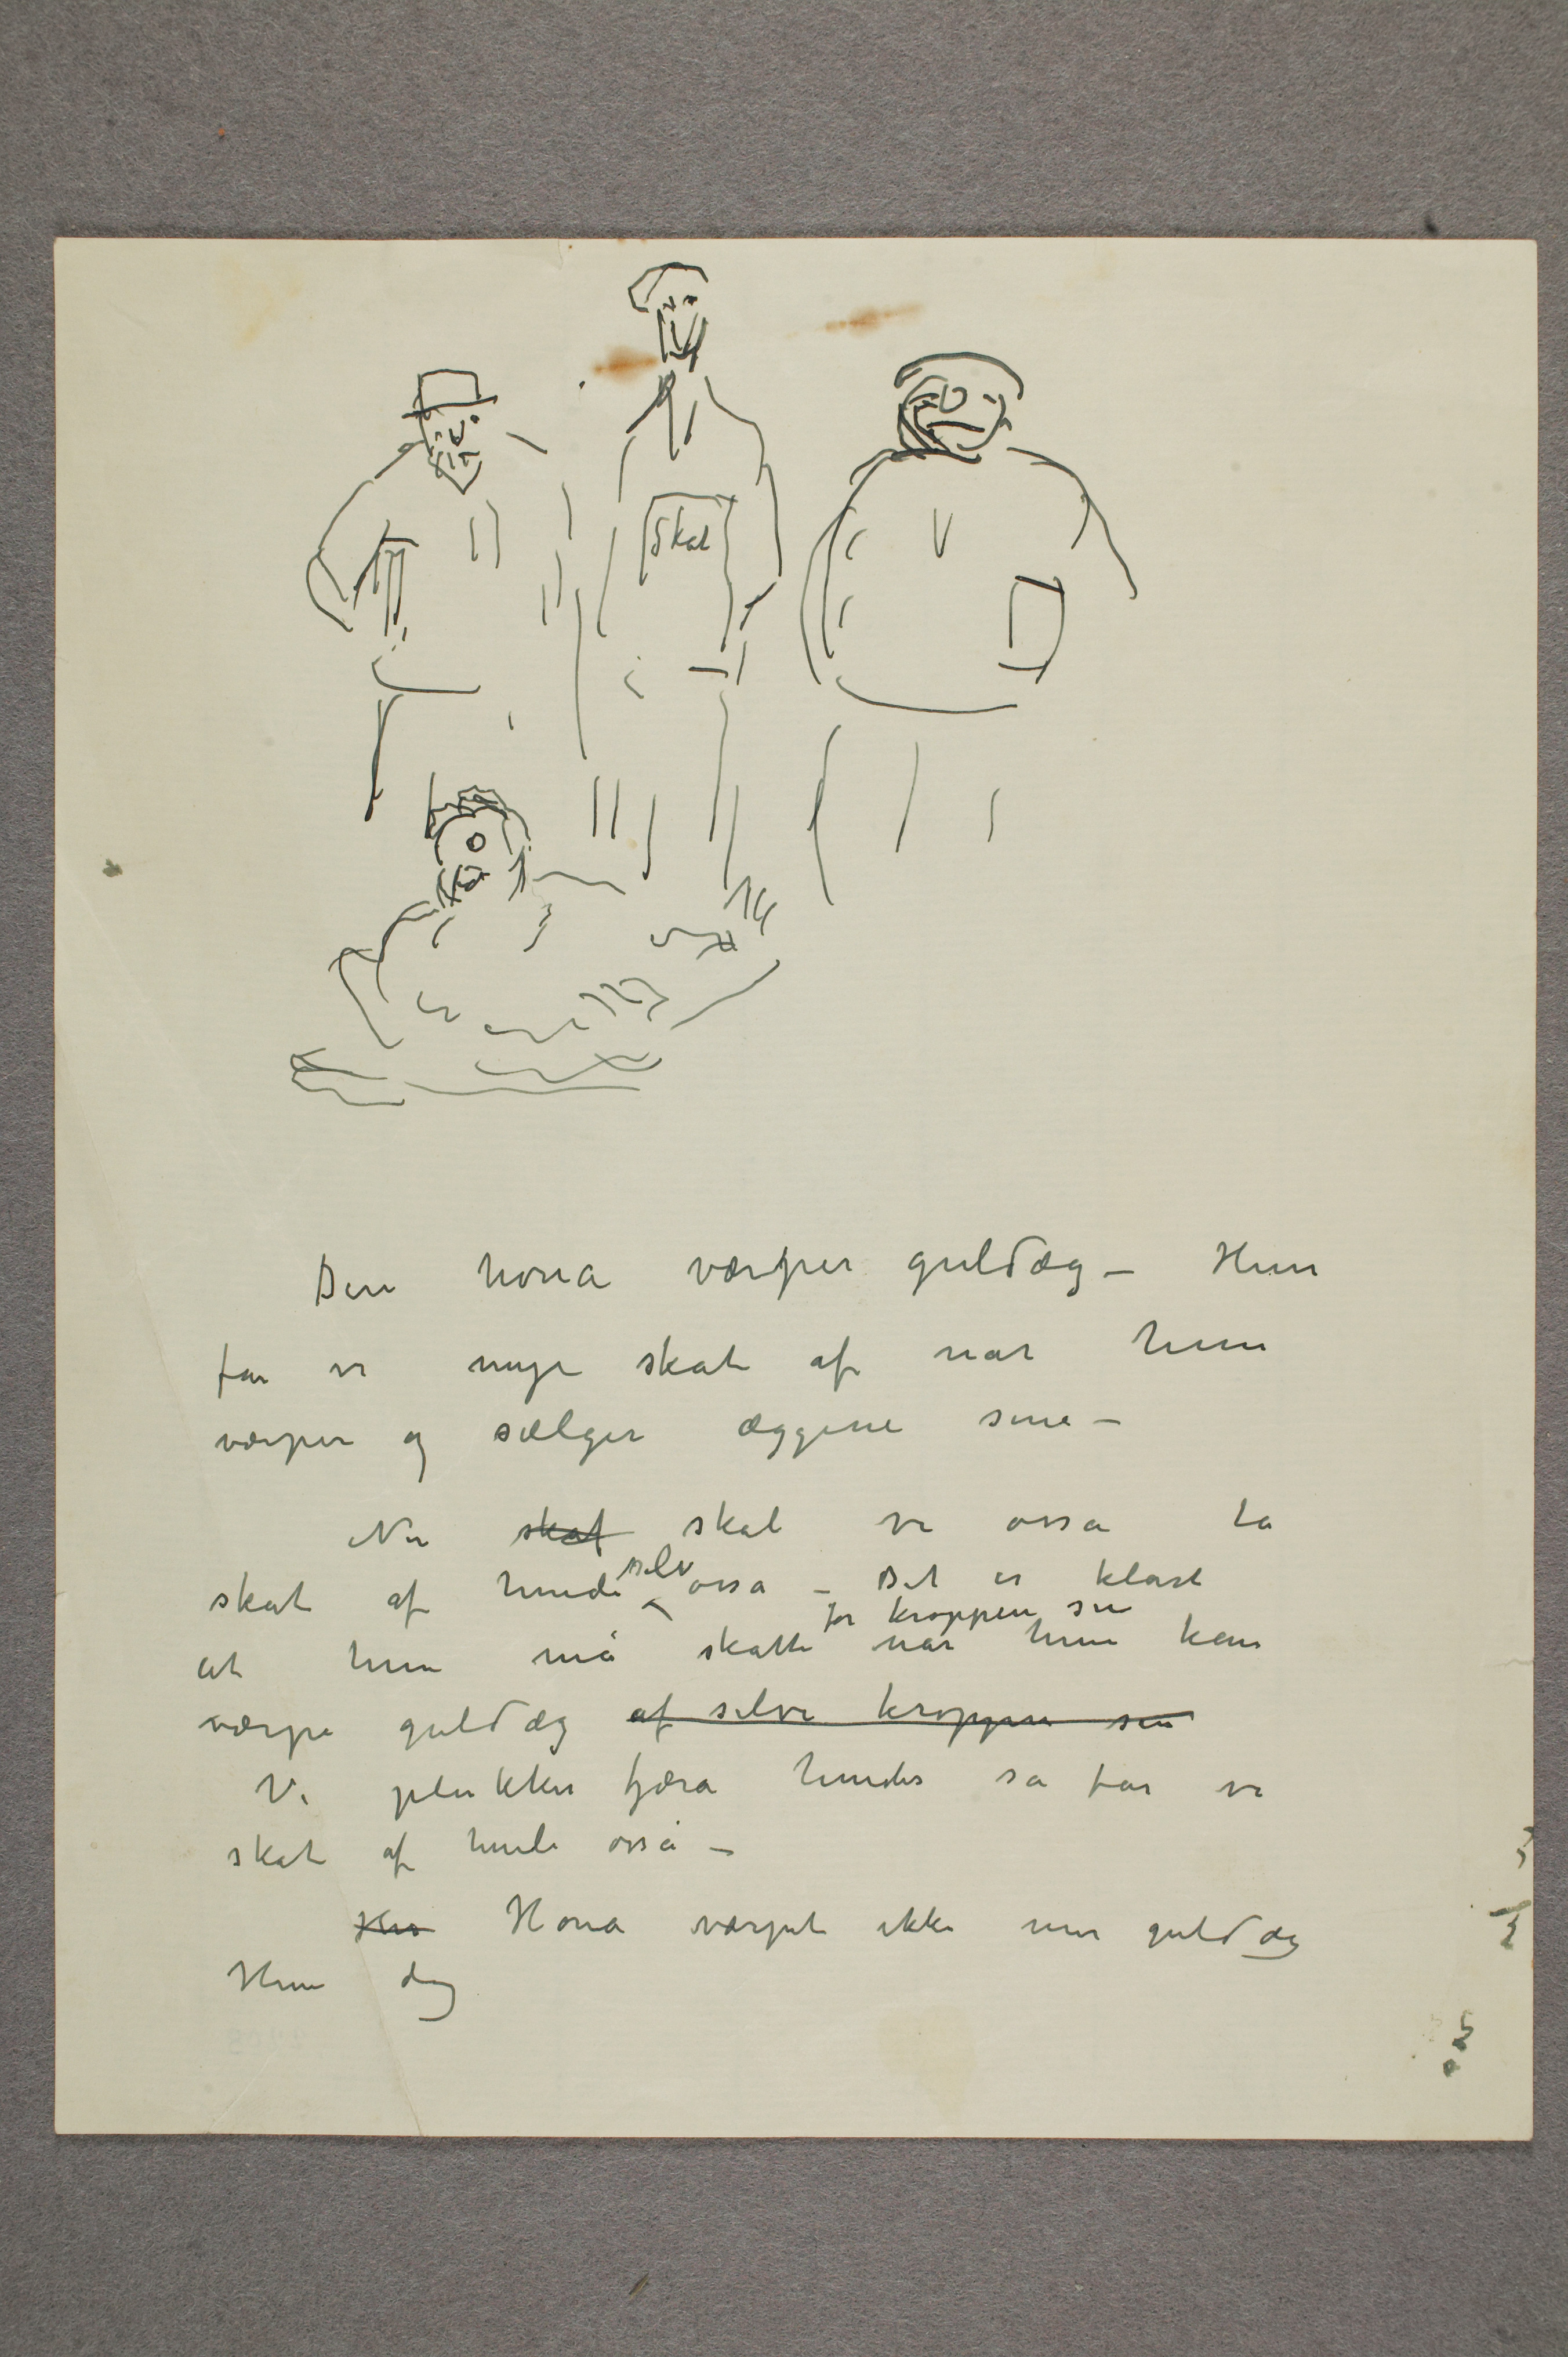 Skat
Den höna værper guldæg – Hun
får vi mye skat af når hun
værper og sælger æggene sine –
Nu skat skal vi osså ta
skat af hende selv osså – Det er klart
at hun må skatte for kroppen sin når hun kan
værpe guldæg af selve kroppen sin
Vi plukker fjæra hendes så får vi
skat af hende osså –
Höna værpet ikke mer guldæg
Hun